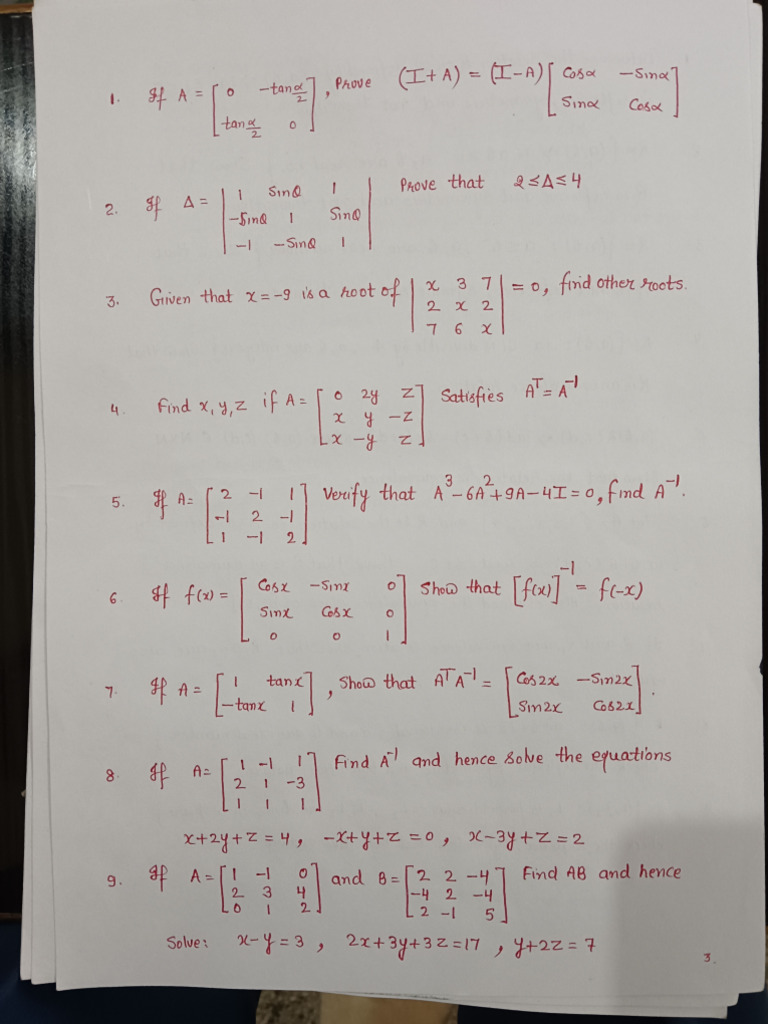 1. If A = [0 -tan α/2; tan α/2 0], Prove (I+A) = (I-A)[Cosα -Sinα; Sinα Cosα]
2. If Δ = |1 Sinθ 1; -Sinθ 1 Sinθ; -1 -Sinθ 1| Prove that 2≤Δ≤4
3. Given that x=-9 is a root of |x 3 7; 2 x 2; 7 6 x| = 0, find other roots.
4. Find x, y, z if A = [0 2y z; x y -z; x -y z] Satisfies Aᵀ = A⁻¹
5. If A = [2 -1 1; -1 2 -1; 1 -1 2] Verify that A³-6A²+9A-4I=0, find A⁻¹.
6. If f(x) = [Cosx -Sinx 0; Sinx Cosx 0; 0 0 1] Show that [f(x)]⁻¹ = f(-x)
7. If A = [1 tanx; -tanx 1], Show that AᵀA⁻¹ = [Cos2x -Sin2x; Sin2x Cos2x].
8. If A= [1 -1 1; 2 1 -3; 1 1 1] Find A⁻¹ and hence Solve the equations
x+2y+z=4, -x+y+z=0, x-3y+z=2
9. If A = [1 -1 0; 2 3 4; 0 1 2] and B = [2 2 -4; -4 2 -4; 2 -1 5] Find AB and hence
Solve: x-y=3, 2x+3y+3z=17, y+2z=7
3.